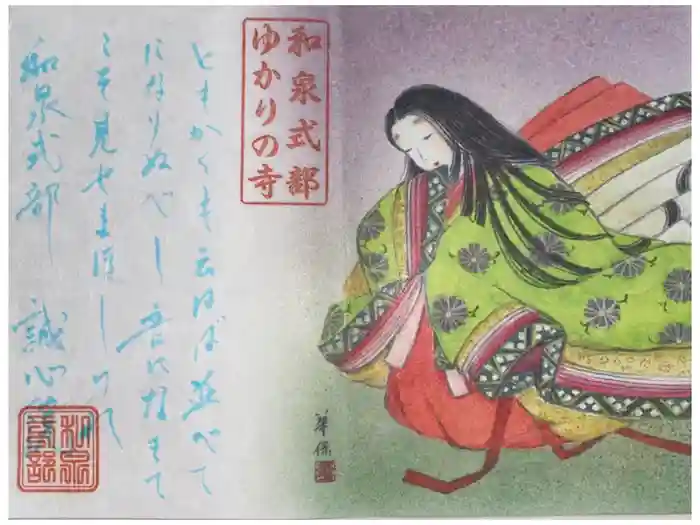 和泉式部
ゆかりの寺
ともかくも云はば並べて
になりぬべし 音に泣きて
こそ見せまほしけれ
和泉式部 誠心
和泉
式部